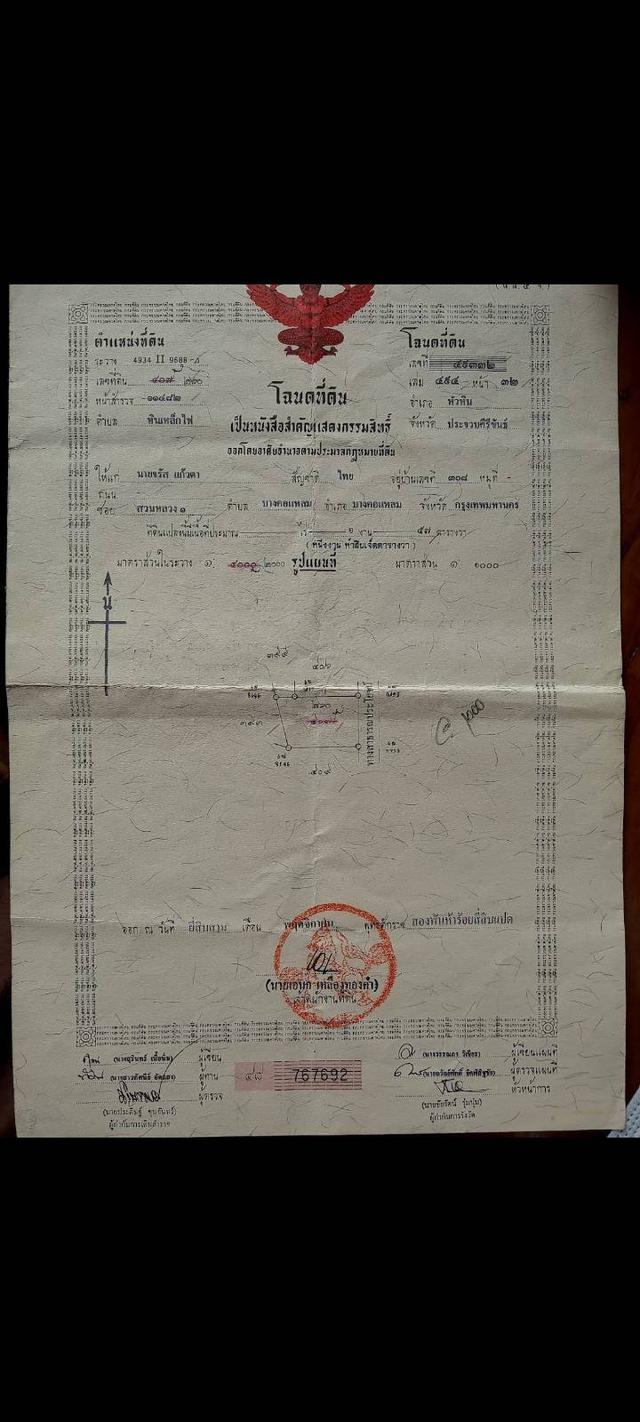 ตำแหน่งที่ดิน
ระวาง 4934 II 9688
เลขที่ดิน ๔๐๗
หน้าสำรวจ ๑๑๔๘๒
ตำบล หินเหล็กไฟ
โฉนดที่ดิน
เลขที่ ๔๕๓๓๒
เล่ม ๔๕๔ หน้า ๓๒
อำเภอ หัวหิน
จังหวัด ประจวบคีรีขันธ์
โฉนดที่ดิน
เป็นหนังสือสำคัญแสดงกรรมสิทธิ์
ออกโดยอาศัยอำนาจตามประมวลกฎหมายที่ดิน
ให้แก่ นายจรัส แก้วตา สัญชาติ ไทย อยู่บ้านเลขที่ ๓๓๘ หมู่ที่ -
ถนน
ซอย สวนหลวง ๑ ตำบล บางคอแหลม อำเภอ บางคอแหลม จังหวัด กรุงเทพมหานคร
ที่ดินแปลงนี้มีเนื้อที่ประมาณ - ไร่ ๑ งาน ๕๗ ตารางวา
( หนึ่งงาน ห้าสิบเจ็ดตารางวา )
มาตราส่วนในระวาง ๑: ๔๐๐๐ ๒๐๐๐ รูปแผนที่ มาตราส่วน ๑: ๑๐๐๐
น
๔๐๖
๔๐๗
ทางสาธารณประโยชน์
๓๙๓
๔๐๙
ออก ณ วันที่ ยี่สิบสาม เดือน พฤศจิกายน พุทธศักราช สองพันห้าร้อยสี่สิบแปด
(นายเอนก เหลืองทองคำ)
เจ้าพนักงานที่ดิน
ผู้เขียน
ผู้ทาน
ผู้ตรวจ
ผู้กำกับการเดินสำรวจ
๔๘ 767692
ผู้เขียนแผนที่
ผู้ตรวจแผนที่
หัวหน้าการ
ผู้กำกับการรังวัด